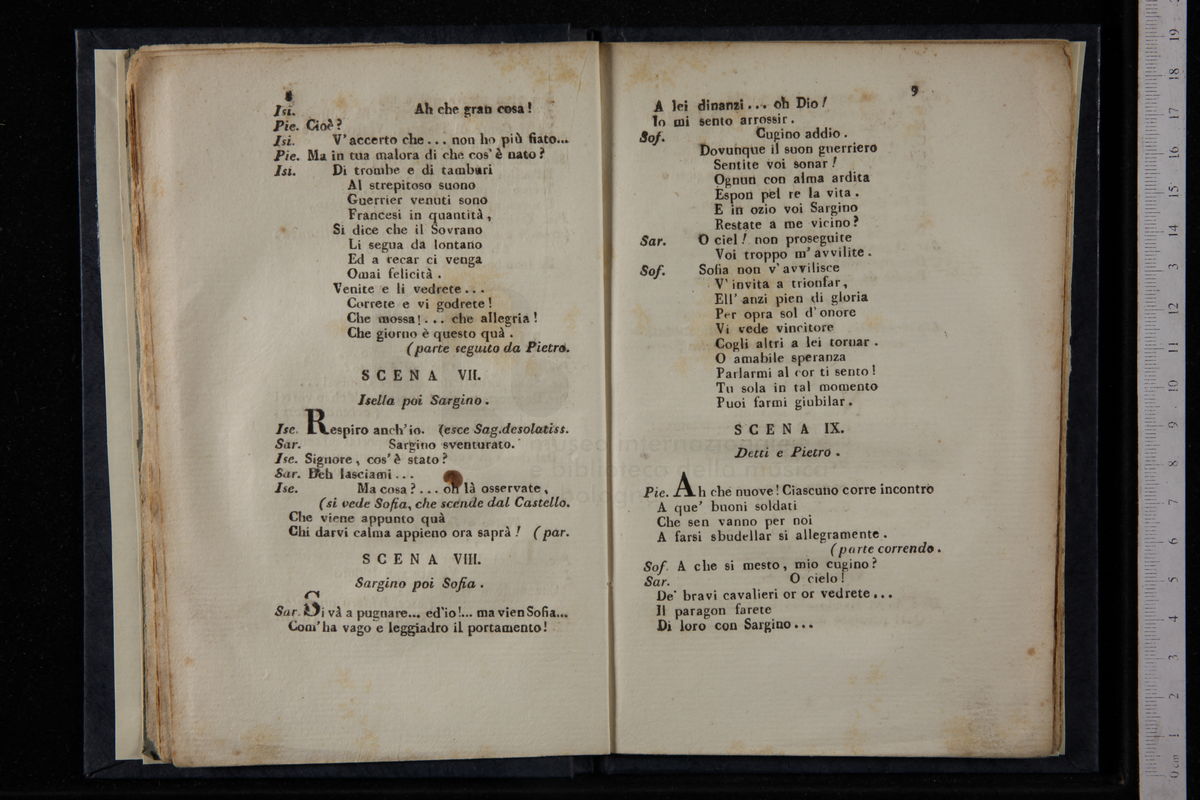 8
Isi. Ah che gran cosa!
Pie. Cioè?
Isi. V'accerto che... non ho più fiato...
Pie. Ma in tua malora di che cos'è nato?
Isi. Di trombe e di tamburi
Al strepitoso suono
Guerrier venuti sono
Francesi in quantità,
Si dice che il Sovrano
Li segua da lontano
Ed a recar ci venga
Omai felicità.
Venite e li vedrete...
Correte e vi godrete!
Che mossa!... che allegria!
Che giorno è questo quà.
(parte seguito da Pietro.
SCENA VII.
Isella poi Sargino.
Ise. Respiro anch'io. (esce Sag.desolatiss.
Sar. Sargino sventurato.
Ise. Signore, cos'è stato?
Sar. Deh lasciami...
Ise. Ma cosa?... oh là osservate,
(si vede Sofia, che scende dal Castello.
Che viene appunto quà
Chi darvi calma appieno ora saprà! (par.
SCENA VIII.
Sargino poi Sofia.
Sar. Si và a pugnare... ed'io!... ma vien Sofia...
Com'ha vago e leggiadro il portamento!
9
A lei dinanzi... oh Dio!
Io mi sento arrossir.
Sof. Cugino addio.
Dovunque il suon guerriero
Sentite voi sonar!
Ognun con alma ardita
Espon pel re la vita.
E in ozio voi Sargino
Restate a me vicino?
Sar. O ciel! non proseguite
Voi troppo m'avvilite.
Sof. Sofia non v'avvilisce
V'invita a trionfar,
Ell' anzi pien di gloria
Per opra sol d'onore
Vi vede vincitore
Cogli altri a lei tornar.
O amabile speranza
Parlarmi al cor ti sento!
Tu sola in tal momento
Puoi farmi giubilar.
SCENA IX.
Detti e Pietro.
Pie. Ah che nuove! Ciascuno corre incontro
A que' buoni soldati
Che sen vanno per noi
A farsi sbudellar si allegramente.
(parte correndo.
Sof. A che si mesto, mio cugino?
Sar. O cielo!
De' bravi cavalieri or or vedrete...
Il paragon farete
Di loro con Sargino...
museo internazionale e
biblioteca della musica
0 cm 1 2 3 4 5 6 7 8 9 10 11 12 13 14 15 16 17 18 19